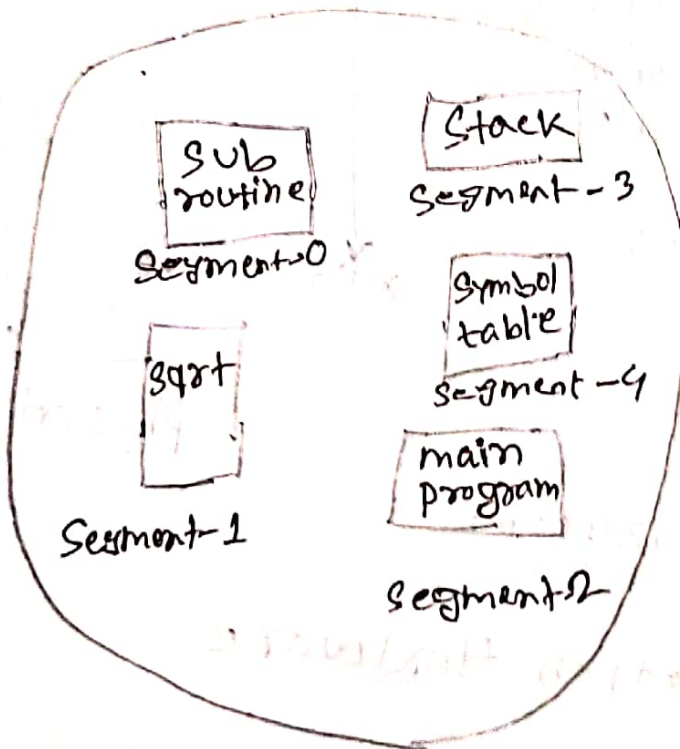 Sub
routine
Segment-0
Stack
Segment-3
Symbol
table
Segment-4
sqrt
Segment-1
main
program
Segment-2